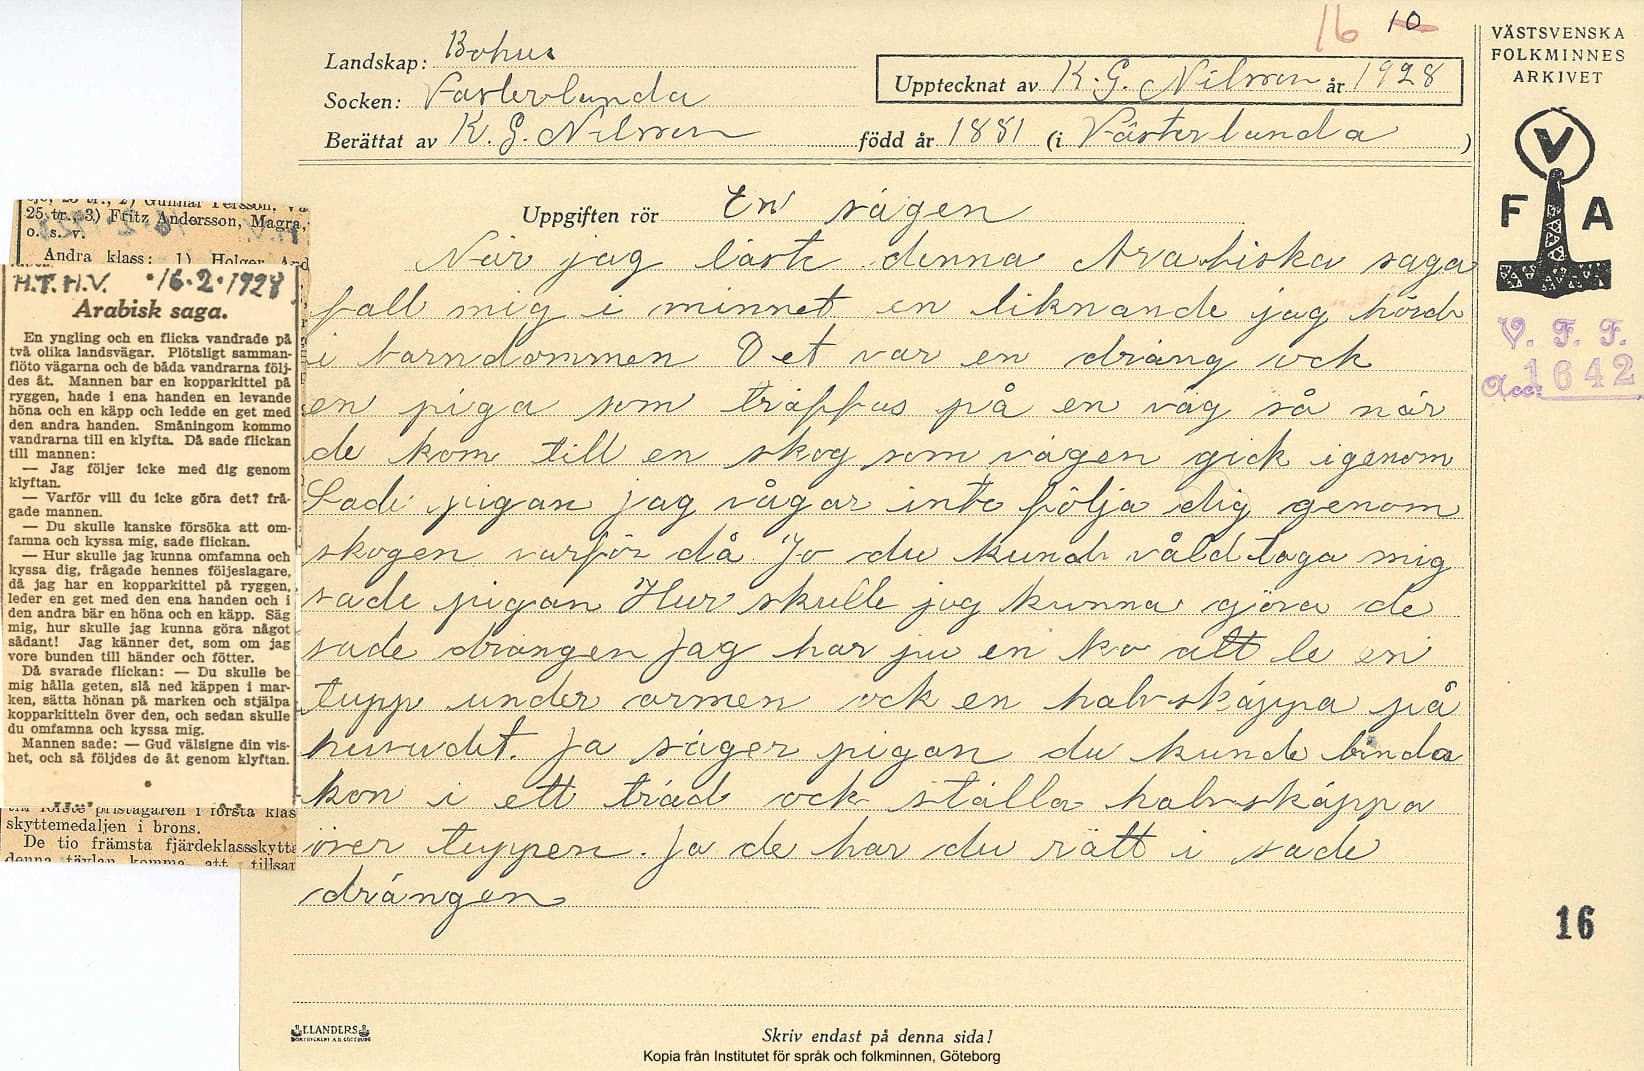 16 10
VÄSTSVENSKA
FOLKMINNES
ARKIVET
V
F A
V. F. F.
Acc: 1642
16
Landskap: Bohus
Socken: Västerlanda
Upptecknat av K. G. Nilsson år 1928
Berättat av K. G. Nilsson född år 1881 (i Västerlanda )
Uppgiften rör En sägen
När jag läste denna Arabiska saga
fall mig i minnet en liknande jag hörde
i barndommen Det var en dräng ock
en piga som träffas på en väg så när
de kom till en skog som vägen gick igenom
Sade pigan jag vågar inte följa dig genom
skogen varför då Jo du kunde våldtaga mig
sade pigan Hur skulle jag kunna göra de
sade drängen Jag har ju en ko att le en
tupp under armen ock en halvskäppa på
huvudet. Ja säger pigan du kunde binda
kon i ett träd ock ställa halvskäppa
över tuppen. Ja de har du rätt i sade
drängen
25 tr., 3) Fritz Andersson, Magra,
o. s. v.
Andra klass: 1) Holger And
H.T.H.V. 16.2.1928
Arabisk saga.
En yngling och en flicka vandrade på
två olika landsvägar. Plötsligt samman-
flöto vägarna och de båda vandrarna följ-
des åt. Mannen bar en kopparkittel på
ryggen, hade i ena handen en levande
höna och en käpp och ledde en get med
den andra handen. Småningom kommo
vandrarna till en klyfta. Då sade flickan
till mannen:
— Jag följer icke med dig genom
klyftan.
— Varför vill du icke göra det? frå-
gade mannen.
— Du skulle kanske försöka att om-
famna och kyssa mig, sade flickan.
— Hur skulle jag kunna omfamna och
kyssa dig, frågade hennes följeslagare,
då jag har en kopparkittel på ryggen,
leder en get med den ena handen och i
den andra bär en höna och en käpp. Säg
mig, hur skulle jag kunna göra något
sådant! Jag känner det, som om jag
vore bunden till händer och fötter.
Då svarade flickan: — Du skulle be
mig hålla geten, slå ned käppen i mar-
ken, sätta hönan på marken och stjälpa
kopparkitteln över den, och sedan skulle
du omfamna och kyssa mig.
Mannen sade: — Gud välsigne din vis-
het, och så följdes de åt genom klyftan.
pristagaren i första klas
skyttemedaljen i brons.
De tio främsta fjärdeklassskytta
denna tävlan komma att tillsar
ELANDERS
BOKTRYCKERI A.B. GÖTEBORG
Skriv endast på denna sida!
Kopia från Institutet för språk och folkminnen, Göteborg